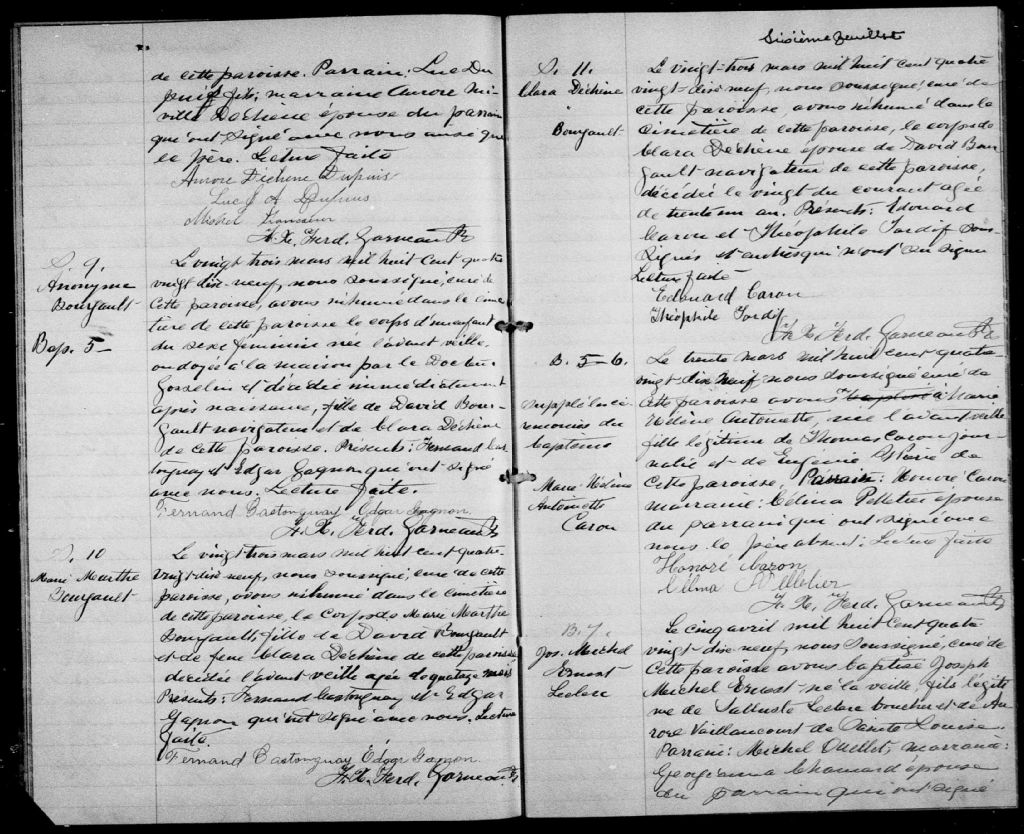 de cette paroisse. Parrain: Luc Du
puis fils; marraine Aurore Mi
ville Dechène épouse du parrain
qui ont signé avec nous ainsi que
le père. Lecture faite
Aurore Dechene Dupuis
Luc A Dupuis
Michel
F. X. Ferd. Garneau Ptr
S. 9.
Anonyme
Bourgault
Bap. 5
Le vingt trois mars mil huit cent quatre
vingt dix-neuf, nous soussigné, curé de
cette paroisse, avons inhumé dans le cime
tière de cette paroisse le corps d'un enfant
du sexe feminin née l'avant veille,
ondoyée à la maison par le Docteur
Gosselin et décédée immédiatement
après naissance, fille de David Bour-
gault navigateur et de Clara Dechène
de cette paroisse. Présents: Fernand Cas
tonguay et Edgar Gagnon qui ont signé
avec nous. Lecture faite.
Fernand Castonguay Edgar Gagnon.
F. X. Ferd. Garneau Ptr
S. 10
Marie Marthe
Bourgault
Le vingt trois mars mil huit cent quatre-
vingt-dix neuf, nous soussigné, curé de cette
paroisse, avons inhumé dans le cimetière
de cette paroisse, le corps de Marie Marthe
Bourgault, fille de David Bourgault
et de feue Clara Dechène de cette paroisse
décédée l'avant veille agée de quatre mois
Présents: Fernand Castonguay et Edgar
Gagnon qui ont signé avec nous. Lecture
faite.
Fernand Castonguay Edgar Gagnon.
F. X. Ferd. Garneau Ptr
Sixième feuillet
S. 11.
Clara Dechène
Bourgault
Le vingt-trois mars mil huit cent quatre
vingt-dix neuf, nous soussigné, curé de
cette paroisse, avons inhumé dans le
cimetière de cette paroisse, le corps de
Clara Dechène épouse de David Bour
gault navigateur de cette paroisse,
décédée le vingt du courant agée
de trente un an. Présents: Edouard
Caron et Théophile Tardif sous-
signés et autres qui n'ont su signer
Lecture faite
Edouard Caron
Théophile Tardif
F. X. Ferd. Garneau Ptr
B. 5-6.
Supplé la cé
rémonies du
baptême
Marie Hélène
Antoinette
Caron
Le trente mars mil huit cent quatre
vingt-dix neuf nous soussigné curé de
cette paroisse avons baptisé à Marie
Hélène Antoinette, née l'avant veille
fille légitime de Thomas Caron jour-
nalier et de Eugénie de
cette paroisse, Parrain: Honoré Caron
marraine: Célina Pelletier épouse
du parrain qui ont signé avec
nous. le père absent. Lecture faite
Honoré Caron
Célina Pelletier
F. X. Ferd. Garneau Ptr
B. 7.
Jos. Michel
Ernest
Leclerc
Le cinq avril mil huit cent quatre
vingt-dix neuf, nous soussigné, curé de
cette paroisse avons baptisé Joseph
Michel Ernest né la veille, fils légiti
me de Salluste Leclerc boucher et de Au
rore Vaillancourt de Sainte Louise.
Parrain: Michel Ouellet, marraine:
Georgianna Chouinard épouse
du parrain qui ont signé